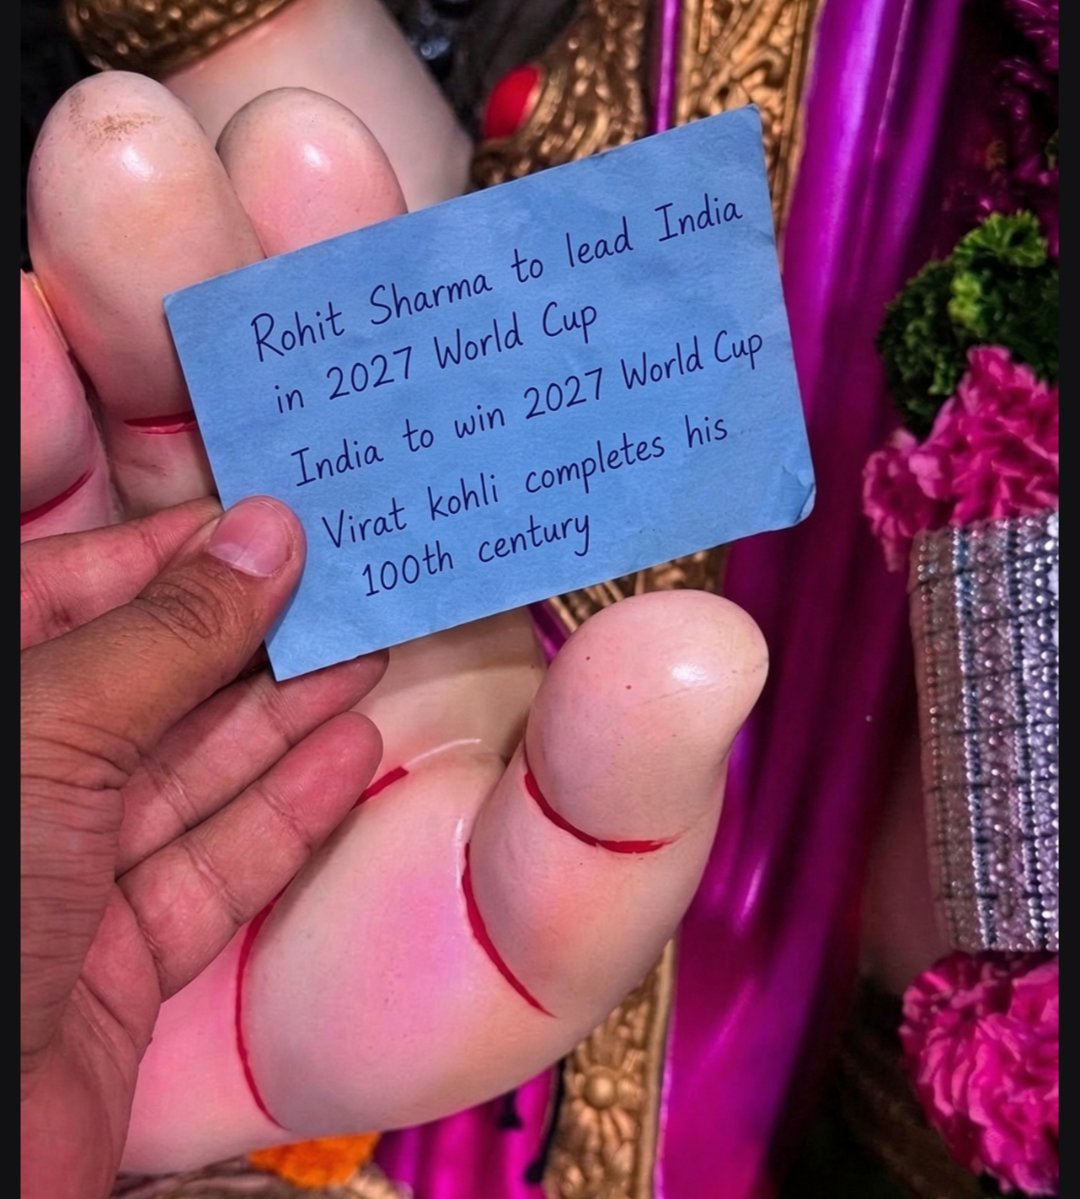 Rohit Sharma to lead India
in 2027 World Cup
India to win 2027 World Cup
Virat kohli completes his
100th century